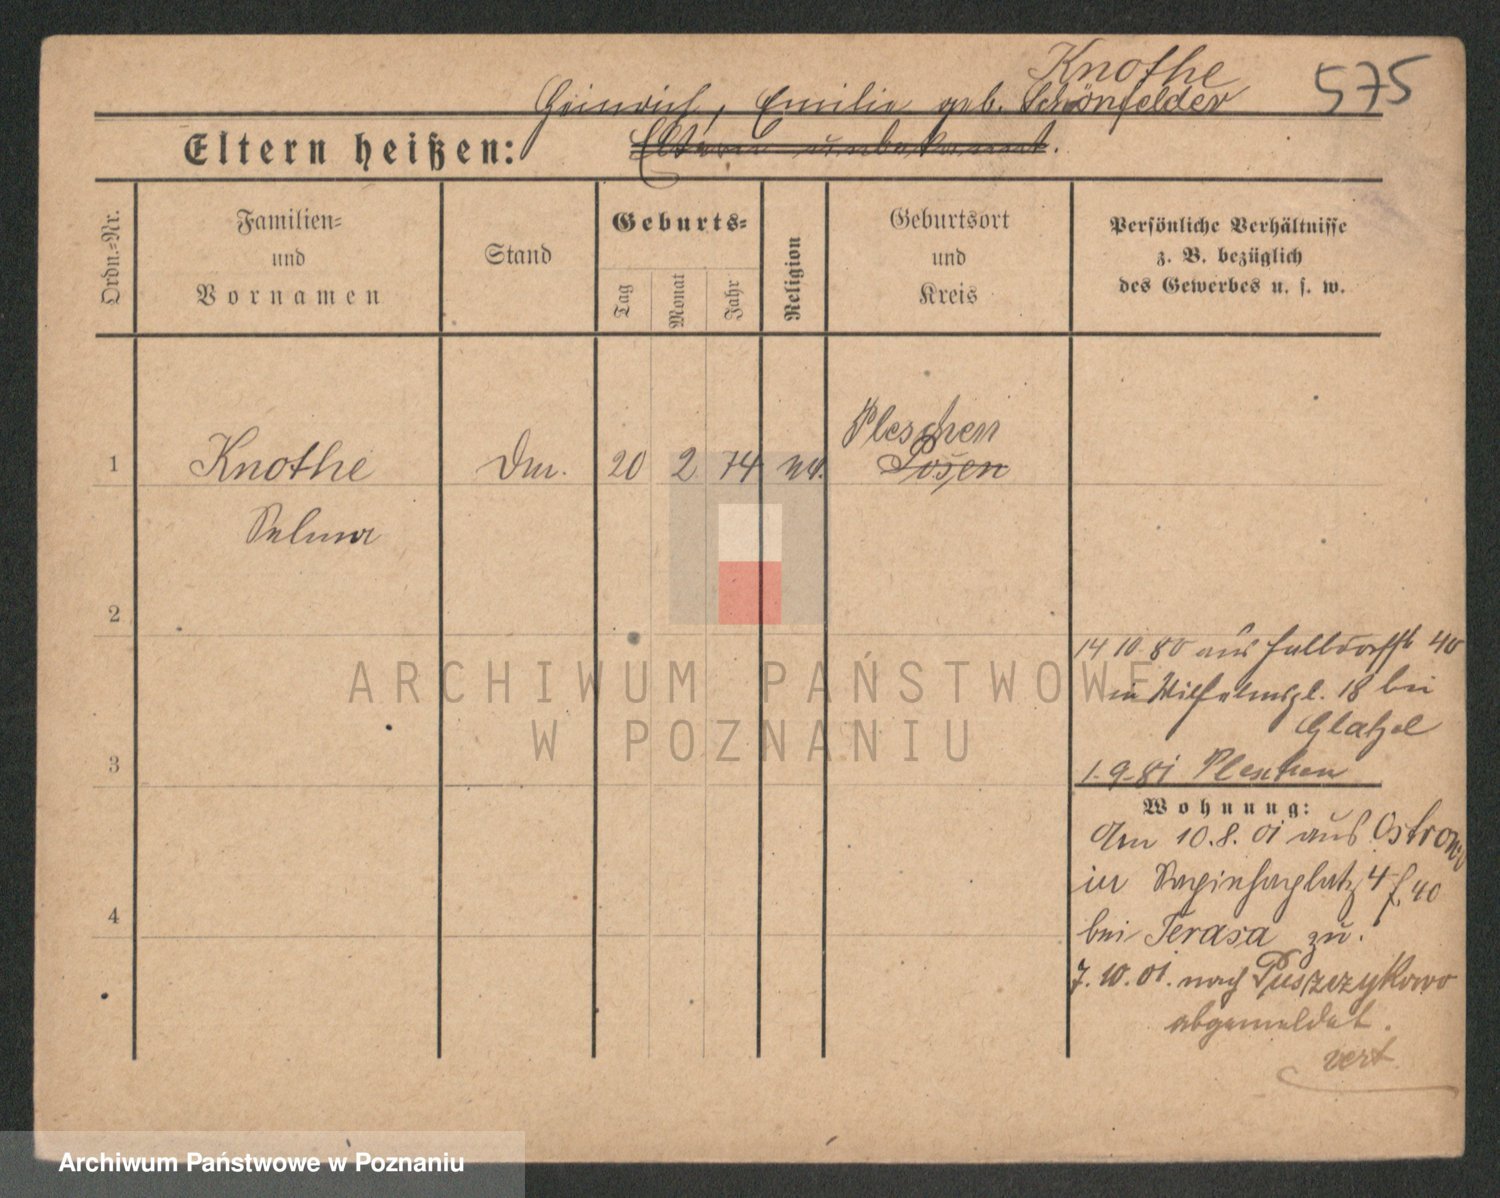 Knothe 575
Heinrich, Emilie geb. Schönfelder
Eltern heißen: Eltern unbekannt.
Ordn.=Nr.
Familien=
und
Vornamen
Stand
Geburts=
Tag
Monat
Jahr
Religion
Geburtsort
und
Kreis
Persönliche Verhältnisse
z. B. bezüglich
des Gewerbes u. s. w.
Pleschen
1 Knothe 20 2 74 Posen
Selma
2
14 10 80 aus 40
in Wilhelmspl. 18 bei
Glatzel
1.9.81 Pleschen
3
Wohnung:
Am 10.8.01 aus Ostrowo
in Sapiehaplatz 4 40
bei Terasa zu.
4
7.10.01. nach Puszczykowo
abgemeldet.
vert
ARCHIWUM PAŃSTWOWE
W POZNANIU
Archiwum Państwowe w Poznaniu